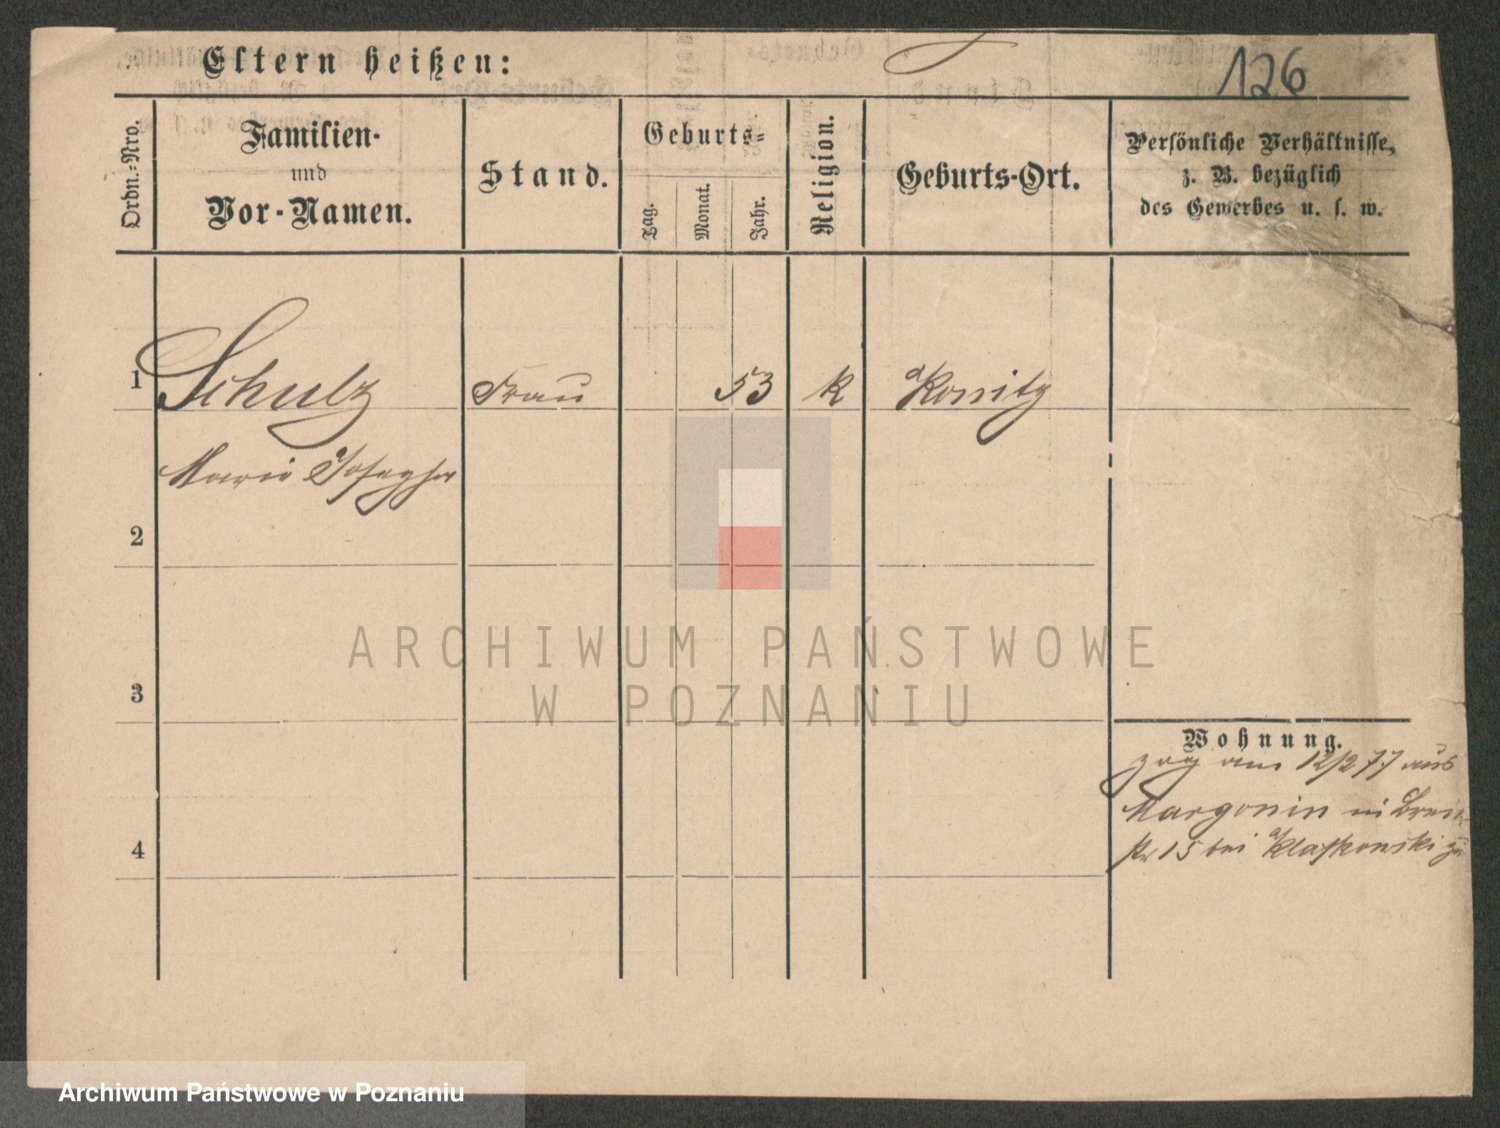 Eltern heißen:
126
Ordn.-Nro.
Familien-
und
Vor-Namen.
Stand.
Geburts-
Tag.
Monat.
Jahr.
Religion.
Geburts-Ort.
Persönliche Verhältnisse,
z. B. bezüglich
des Gewerbes u. s. w.
1
Schulz
Frau
53
k
Konitz
Marie Josepha
2
ARCHIWUM PAŃSTWOWE
W POZNANIU
3
Wohnung.
zog am 12/2 77 aus
Margonin in
15 bei Klaskowski
4
Archiwum Państwowe w Poznaniu